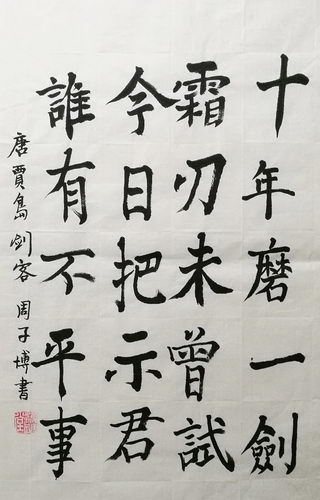 十年磨一劍
霜刃未曾試
今日把示君
誰有不平事
唐賈島劍客 周子博書